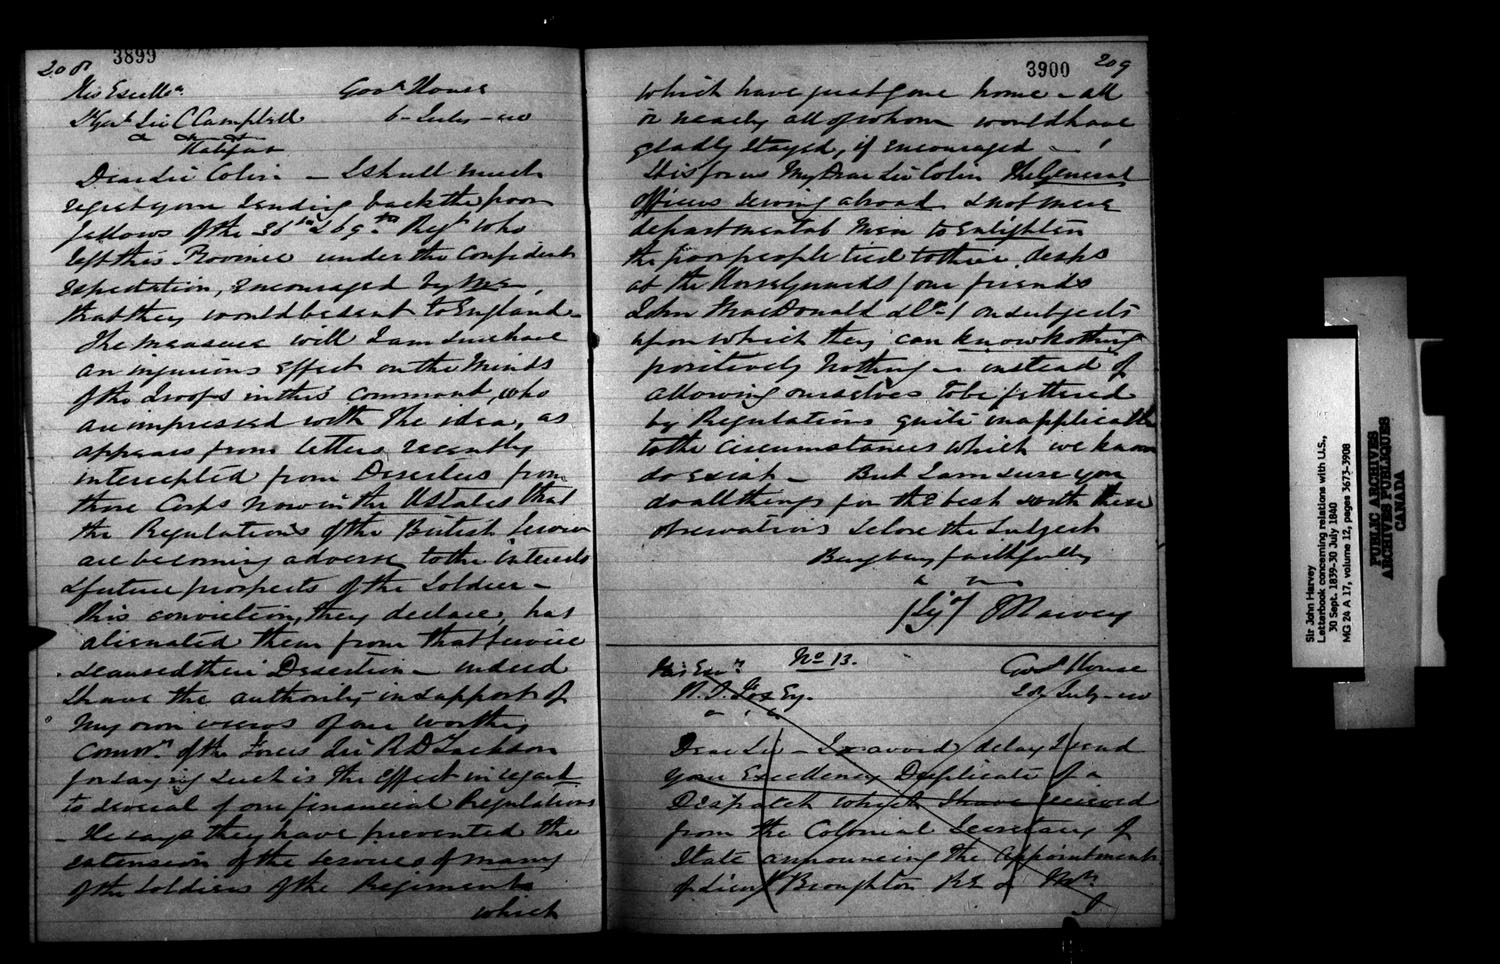 208
3899
His Excelln.
Govt. House
Lt Genl Sir C Campbell
6 - July - 40
&c &c &c
Halifax
Dear Sir Colin - I shall much
regret your sending back the poor
fellows of the 36th & 69th Regt. who
left this Province under the confident
expectation, encouraged by me,
that they would be sent to England -
The measure will I am sure have
an injurious effect on the minds
of the Troops in this command, who
are impressed with the idea, as
appears from letters recently
intercepted from Deserters from
those Corps now in the UStates that
the Regulations of the British Service
are becoming adverse to the interests
& future prospects of the Soldier -
this conviction, they declare, has
alienated them from that service
& caused their Desertion - indeed
I have the authority in support of
my own views of our worthy
Commr. of the Forces Sir R D Jackson
for saying such is the effect in regard
to several of our financial Regulations
- He says they have prevented the
extension of the services of many
of the Soldiers of the Regiments
which
3900
209
which have just gone home - all
or nearly all of whom would have
gladly stayed, if encouraged - !
It is for us My Dear Sir Colin the General
officers serving abroad & not mere
departmental men to enlighten
the poor people tied to their desks
at the Horse Guards (our friends
John MacDonald & Co.) on subjects
upon which they can know nothing
positively nothing - instead of
allowing ourselves to be fettered
by Regulations quite inapplicable
to the circumstances which we know
do exist - But I am sure you
do all things for the best with these
observations I leave the subject
faithfully
(Sig) J Harvey
No 13.
His Exy.
Govt House
H. S. Fox Esq.
20 July - 40
Dear Sir - To avoid delay I send
your Excellency Duplicate of a
Despatch which I have received
from the Colonial Secretary of
State announcing the appointment
of Lieut Broughton RE & Mr.
J
Sir John Harvey
Letterbook concerning relations with U.S.,
30 Sept. 1839-30 July 1840
MG 24 A 17, volume 12, pages 3673-3908
PUBLIC ARCHIVES
ARCHIVES PUBLIQUES
CANADA